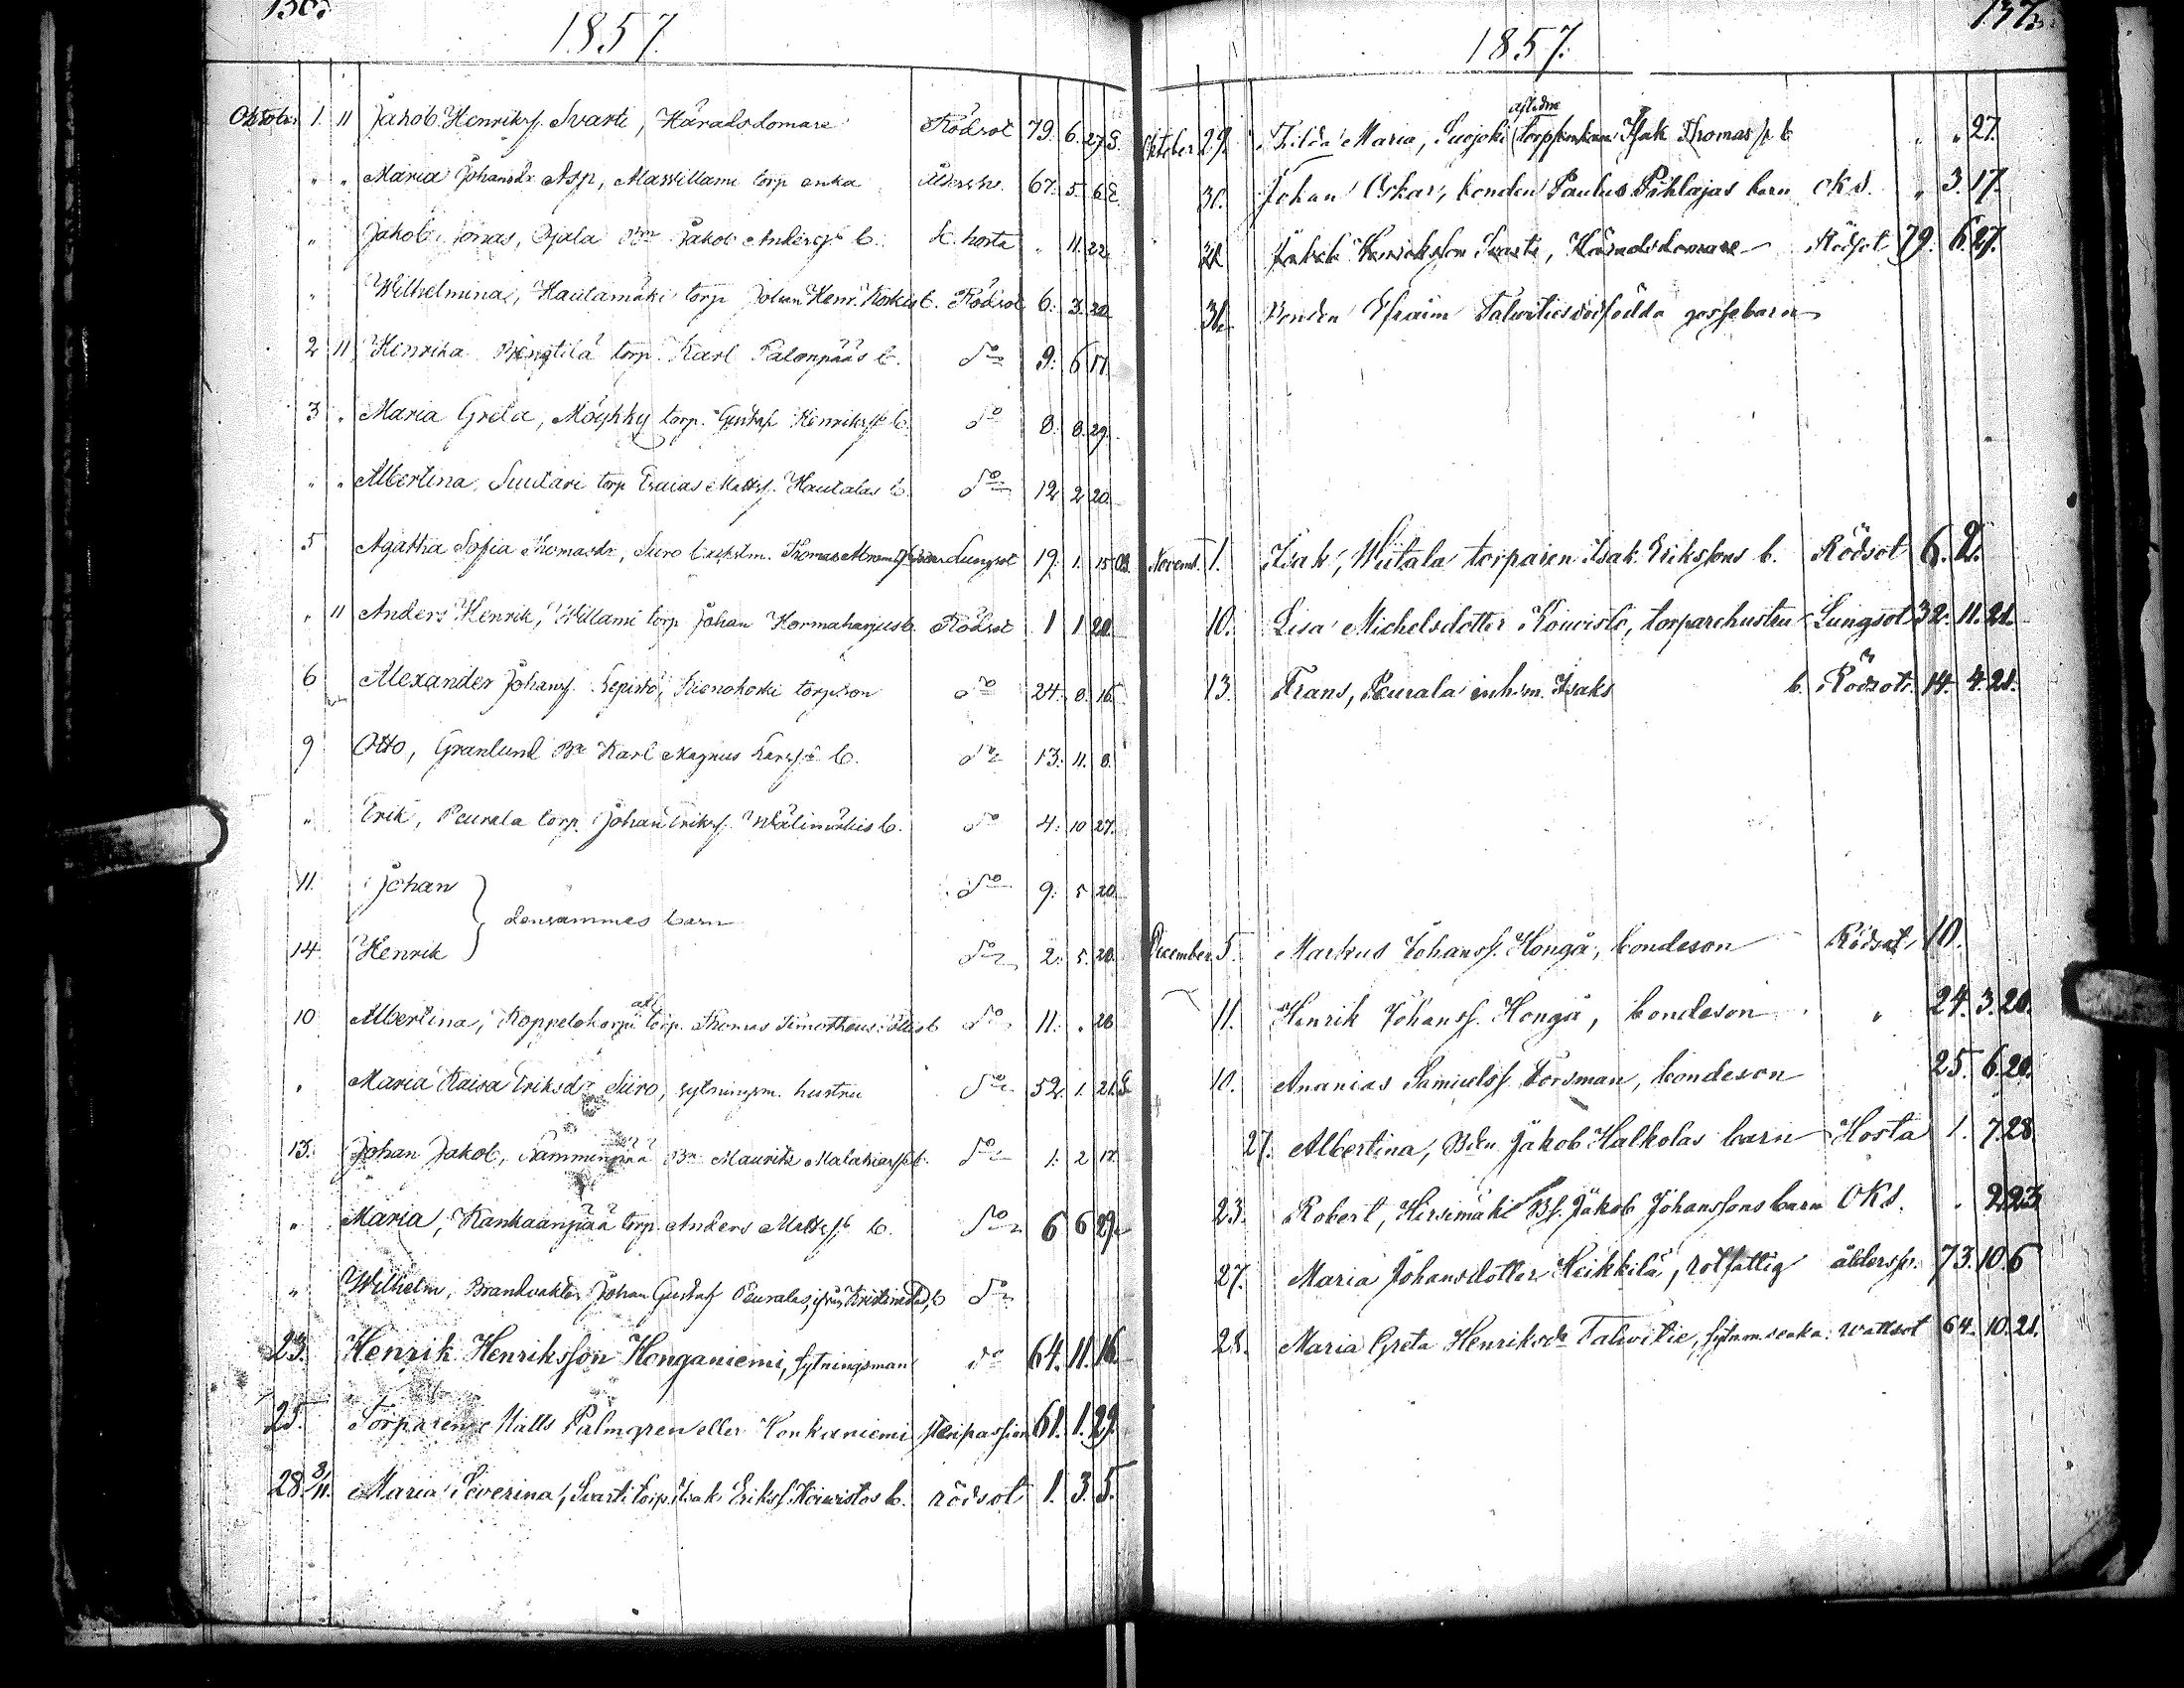 136.
1857.
Oktober 1. 11 Jakob Henrikss. Svarti, Häradsdomare Rödsot 79. 6. 27 E.
" " Maria Johansdr Asp, Massillami torp enka åldersk. 67. 5. 6 E.
" Jakob Jonas, Ojala Jakob Anders b. k. hosta " 11. 22
" Wilhelmina, Hautamäki torp Johan Henr. b. Rödsot 6. 3. 20
2 11 Henrika torp. Karl Palonpääs b. do 9. 6 17.
3 " Maria Greta, Möykky torp. Gustaf Henrikss. b. do 8. 8. 29.
" " Albertina, Suutari torp Esaias Matts. Hautalas b. do 12 2 20.
5 Agatha Sofia Thomasdr, Siiro Thomas Lungsot 19. 1. 15
" 11 Anders Henrik, Willami torp Johan Hormaharjus b. Rödsot 1 1 20.
6 Alexander Johanss. Lepistö, torpson do 24. 8. 16
9 Otto, Granlund Karl Magnus b. do 13. 11. 8.
" Erik, Peurala torp. Johan Erikss. Wälimäkis b. do 4. 10 27.
11. Johan do 9. 5 20
densammes barn
14 Henrik do 2. 5. 20.
10 Albertina, Koppelokorpi torp. Thomas Timotheus b do 11. " 26
" Maria Kaisa Eriksdr Siiro, sytningsm. hustru do 52. 1. 21. E
13. Johan Jakob, Sammenpää Maurits b. do 1. 2 17.
" Maria, Kankaanpää torp. Anders Matts b. do 6 6 29
" Wilhelm, Brandvakten Johan Gustaf Peuralas, ifrån Kristinestad, b do
23. Henrik Henriksson Honganiemi, sytningsman do 64. 11. 16.
25. Torparen Matts Palmgren eller Konkaniemi 61. 1. 29.
28. 3/11. Maria Severina, Svarti torp. Isak Erikss. Koivistos b. rödsot 1. 3. 5.
137.
1857.
Oktober 29. Tilda Maria, Luojoki aflidne Isak Thomas b " " 27.
30. Johan Oskar, bonden Paulus Pihlajas barn okd. " 3. 17.
31 Jakob Henriksson Svarti, Häradsdomare Rödsot 79. 6. 27.
31. Bonden Efraim Talvities dödfödda gossebarn
Novemb. 1. Isak, Wiitala torparen Isak Erikssons b. Rödsot 6. 2.
10. Lisa Michelsdotter Koivisto, torparehustru Lungsot 32. 11. 21.
13. Frans, Peurala inh.m. Isaks b. Rödsot 14. 4. 21.
December 5. Markus Johanss. Hongå, bondeson Rödsot 10.
11. Henrik Johanss. Hongå, bondeson " 24. 3. 20.
10. Ananias Samuelss. Forsman, bondeson 25. 6. 20.
27. Albertina, Bdn Jakob Halkolas barn Hosta 1. 7. 28
23. Robert, Hirsimäki Bs. Jakob Johanssons barn Okd. " 2. 23
27. Maria Johansdotter Heikkilä, rotfattig åldersv. 73. 10. 6
28. Maria Greta Henriksdr Talvitie, sytnm. enka wattsot 64. 10. 21.